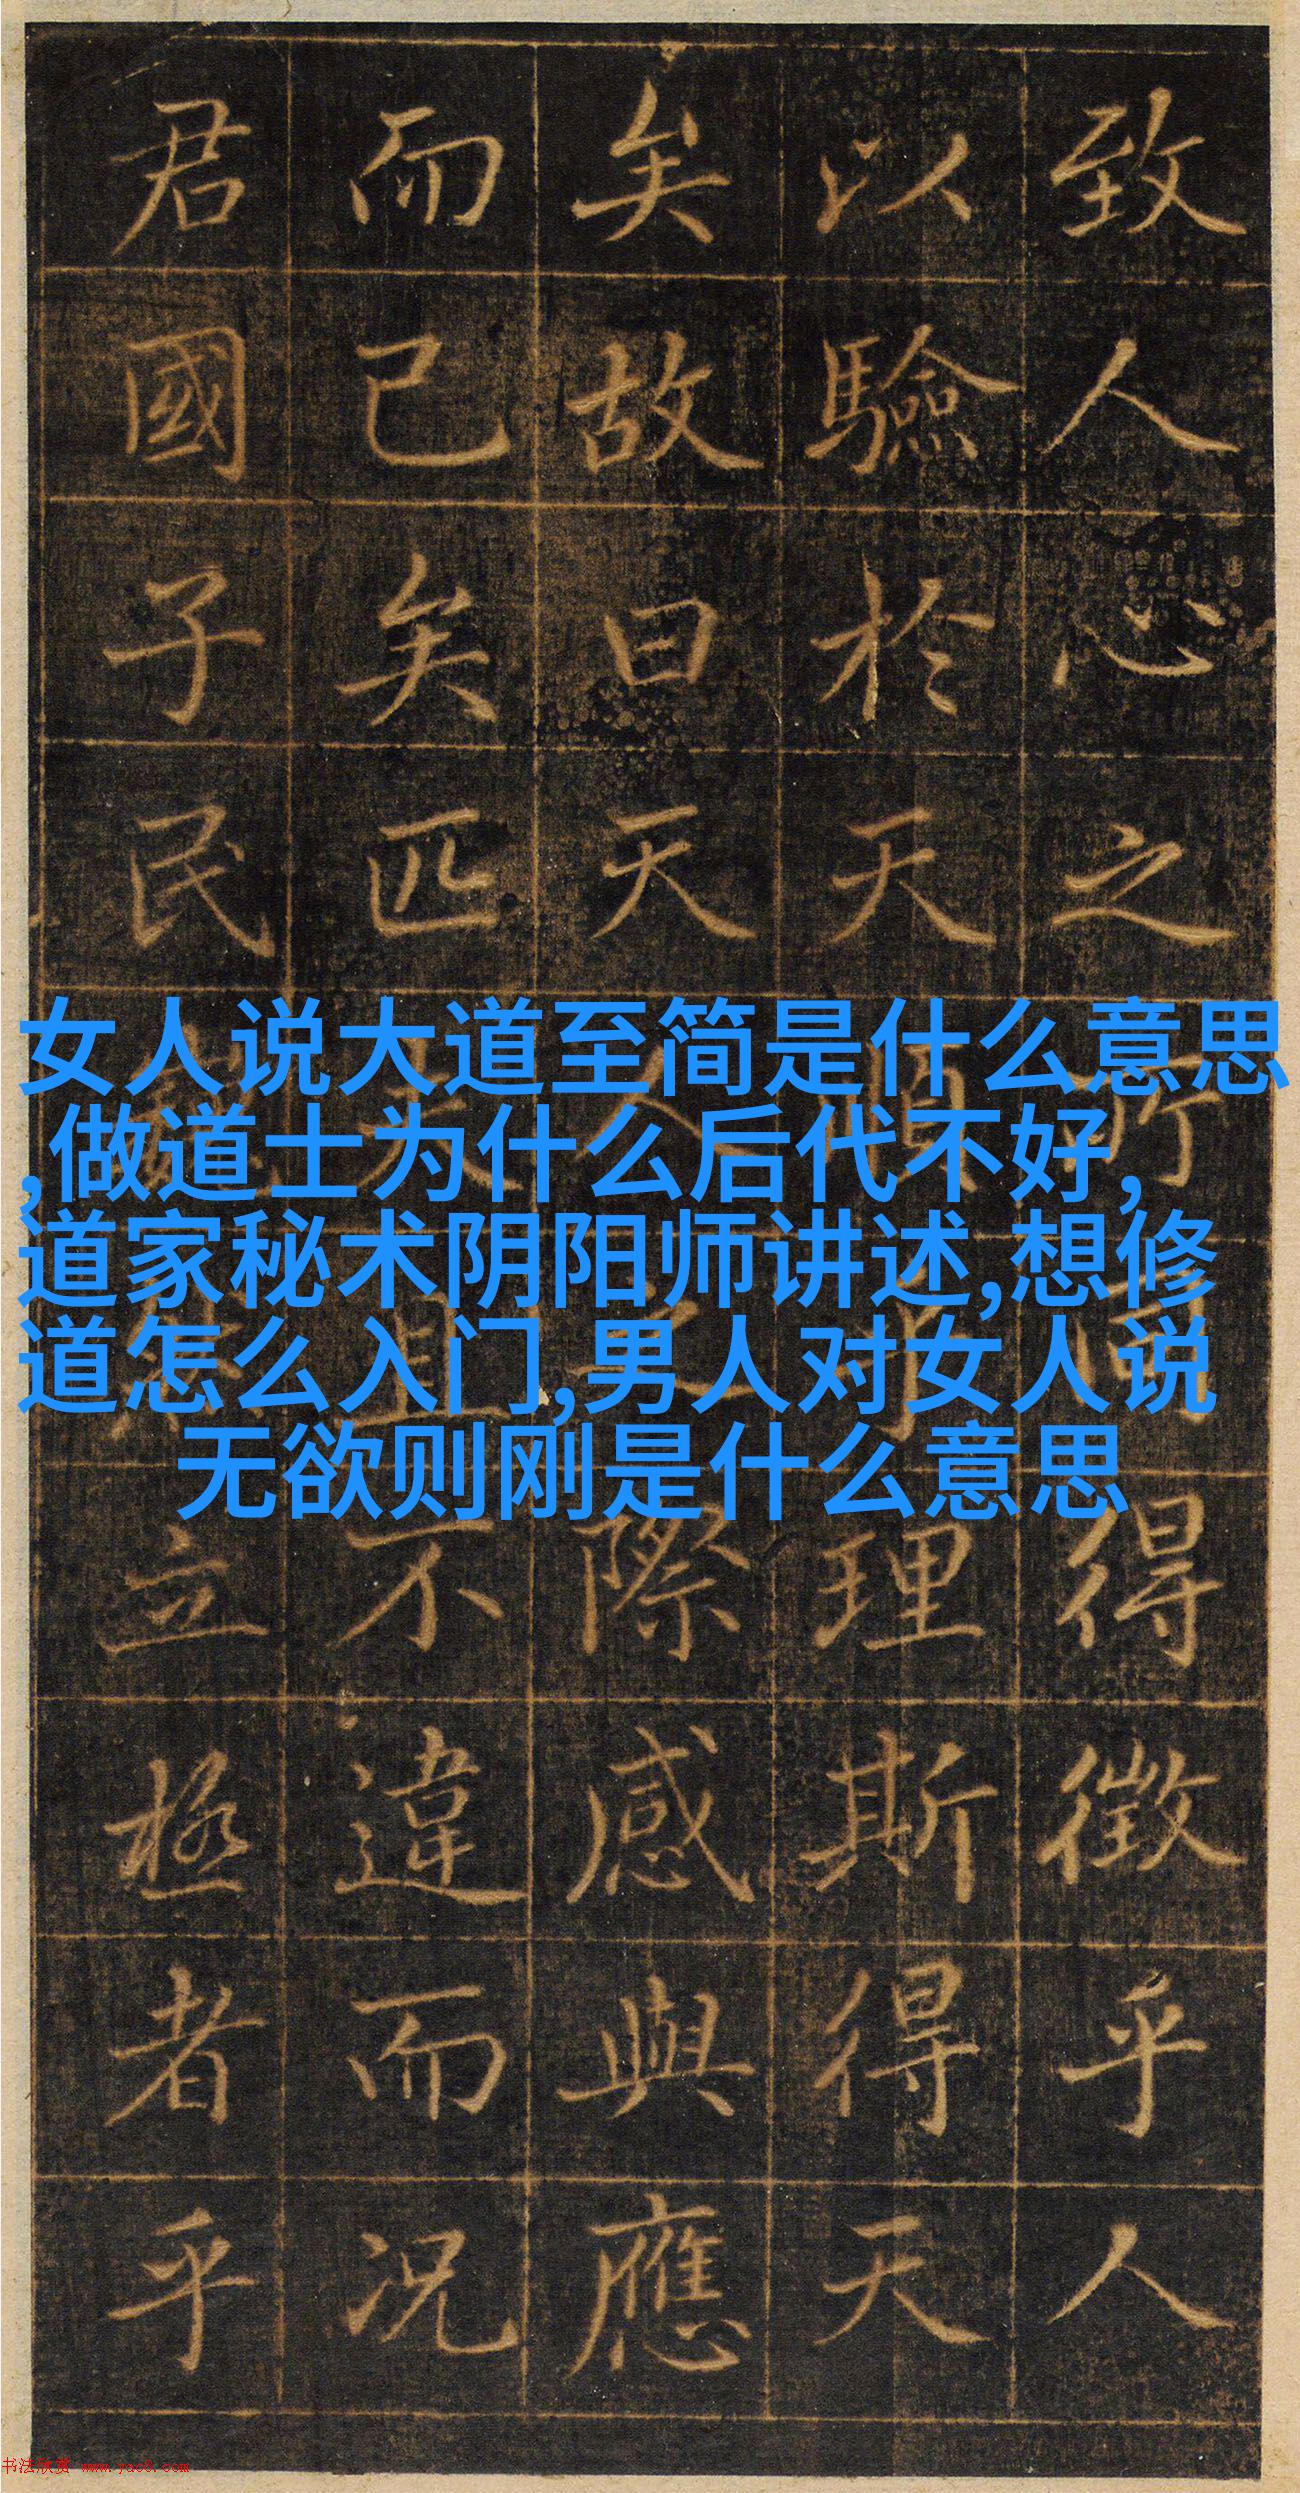 致人心之所得徵乎人
以驗於天順乎理斯得天
矣故曰天人之際感與應
而已矣匹夫且不違而況
君國子民立極者乎
女人说大道至简是什么意思
,做道士为什么后代不好,
道家秘术阴阳师讲述,想修
道怎么入门,男人对女人说
无欲则刚是什么意思
书法欣赏 www.yac8.com